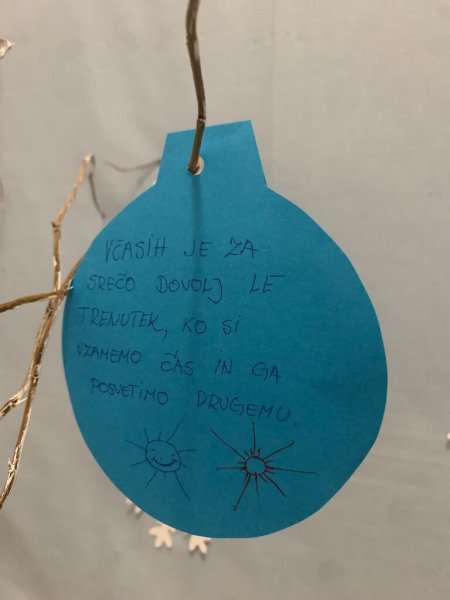 VČASIH JE ZA
SREČO DOVOLJ LE
TRENUTEK, KO SI
VZAMEMO ČAS IN GA
POSVETIMO DRUGEMU.